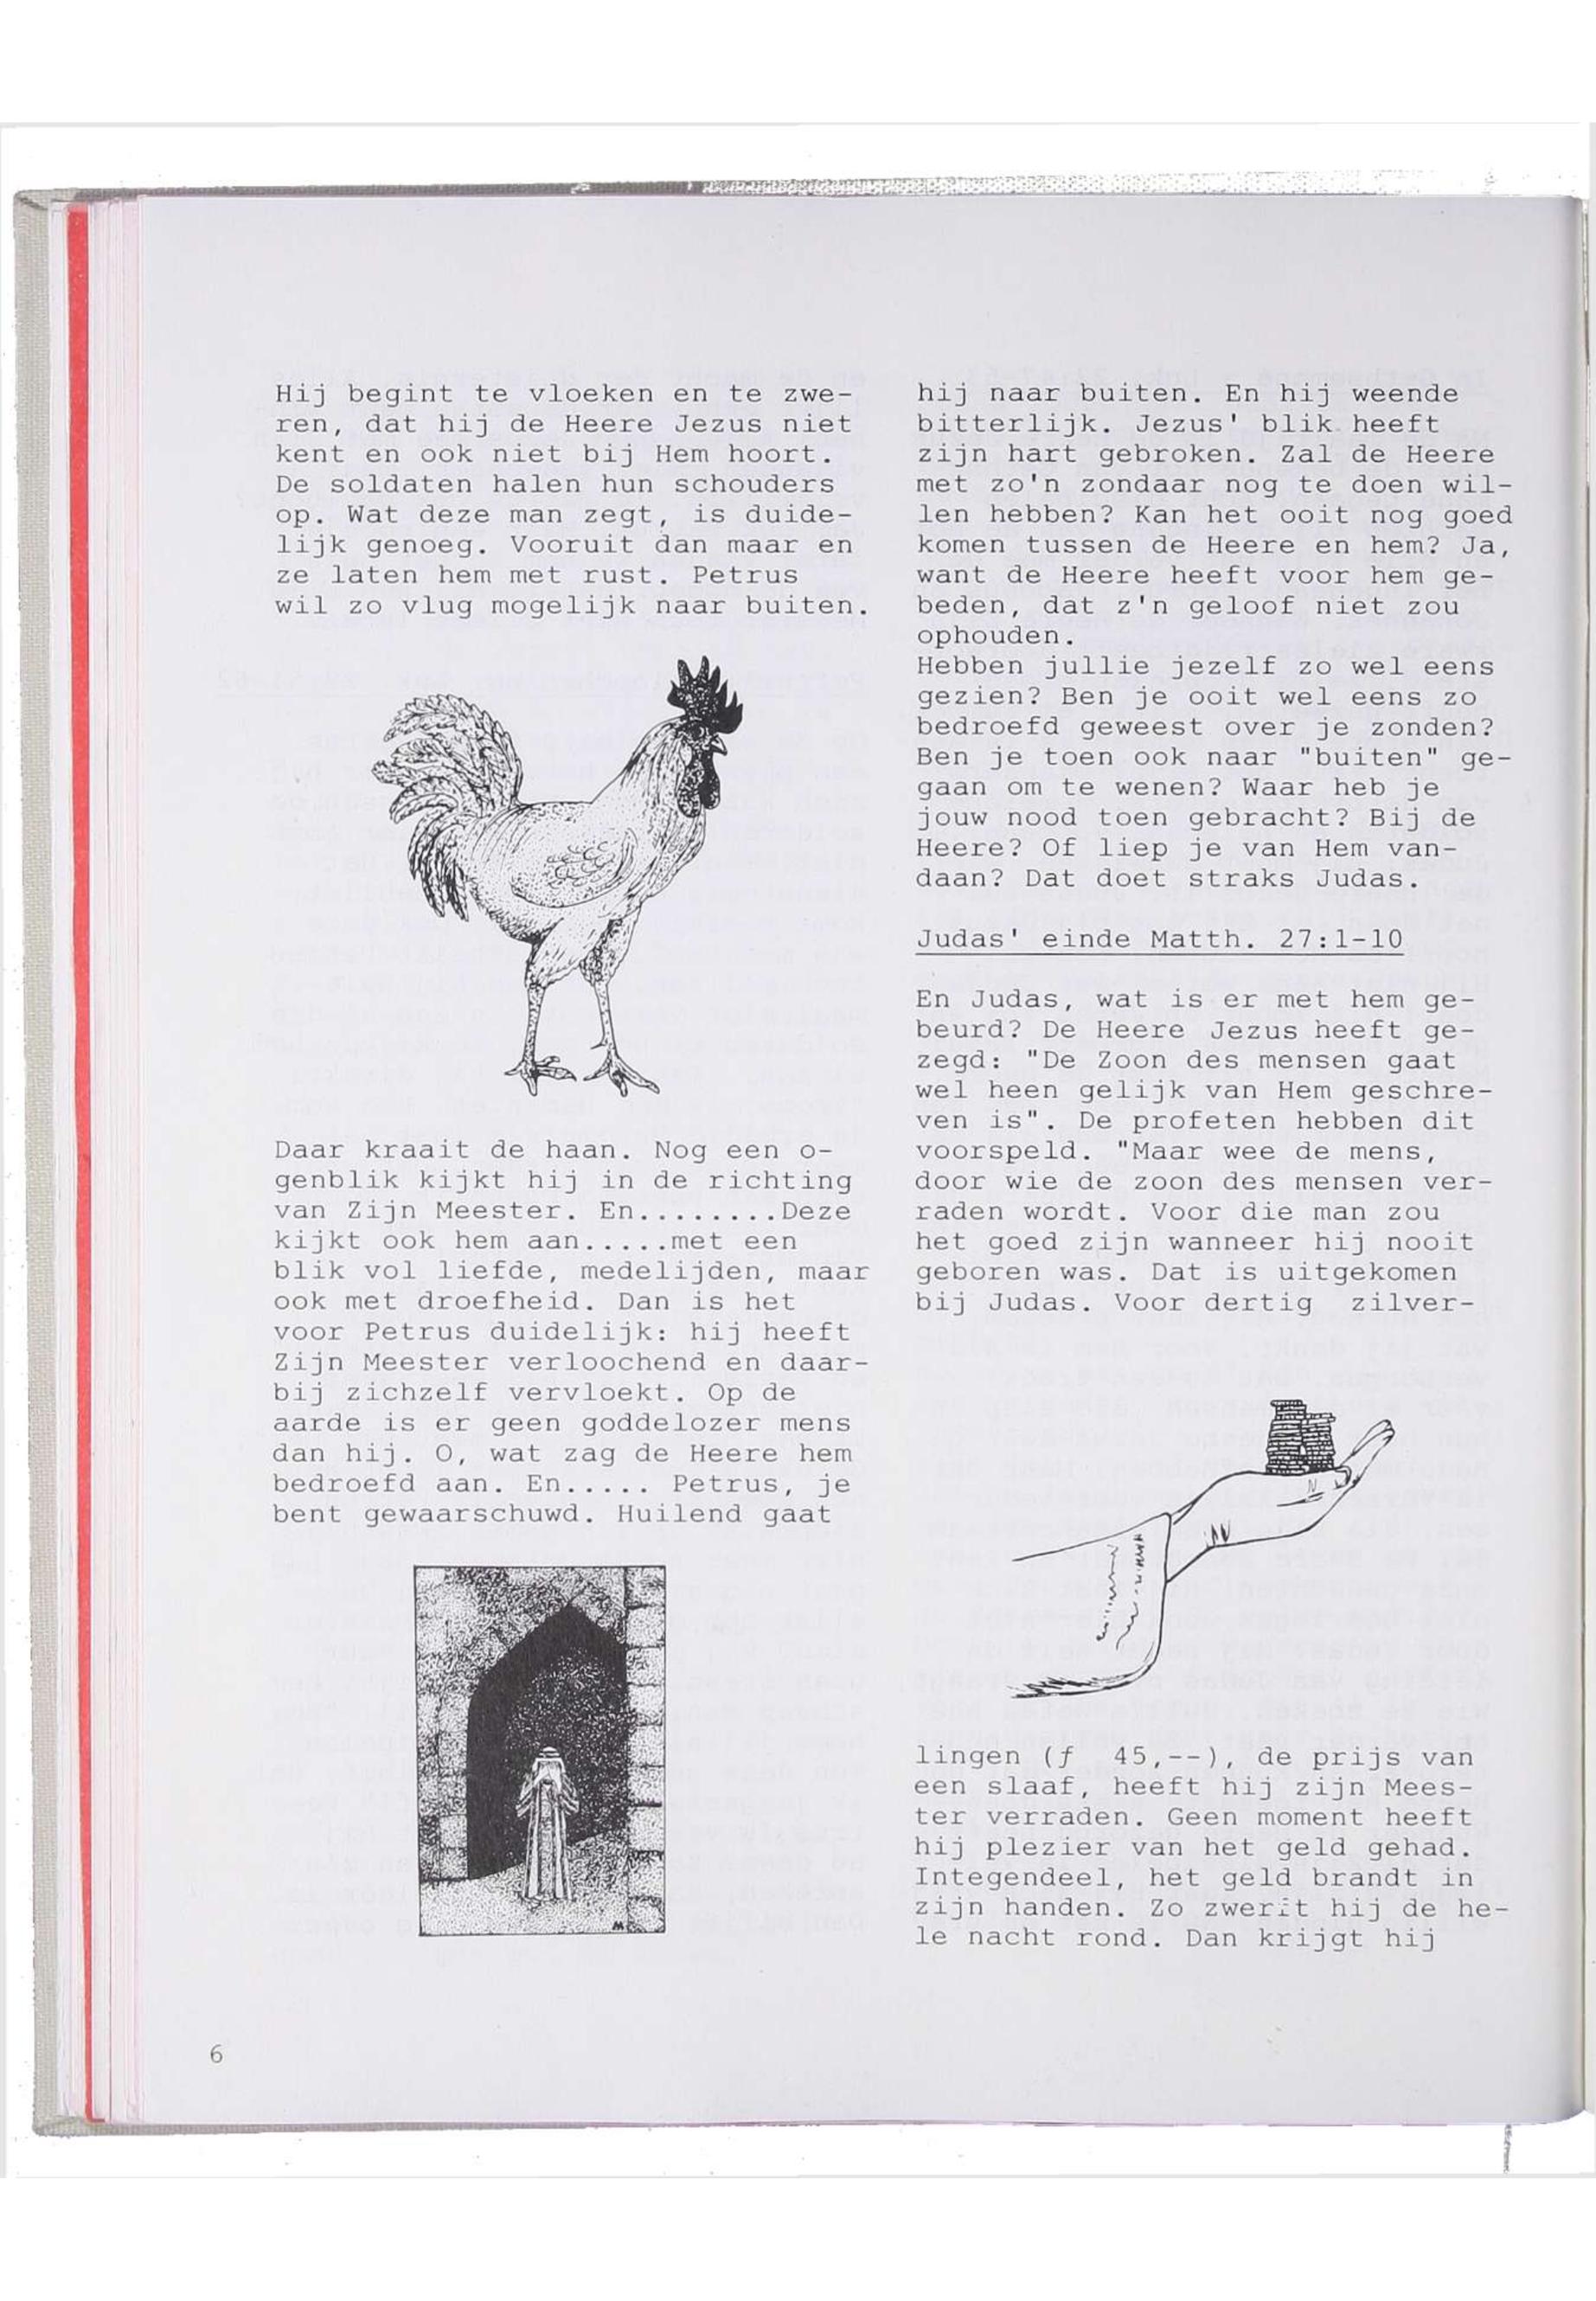 Hij begint te vloeken en te zwe-
ren, dat hij de Heere Jezus niet
kent en ook niet bij Hem hoort.
De soldaten halen hun schouders
op. Wat deze man zegt, is duide-
lijk genoeg. Vooruit dan maar en
ze laten hem met rust. Petrus
wil zo vlug mogelijk naar buiten.
Daar kraait de haan. Nog een o-
genblik kijkt hij in de richting
van Zijn Meester. En........Deze
kijkt ook hem aan.....met een
blik vol liefde, medelijden, maar
ook met droefheid. Dan is het
voor Petrus duidelijk: hij heeft
Zijn Meester verloochend en daar-
bij zichzelf vervloekt. Op de
aarde is er geen goddelozer mens
dan hij. O, wat zag de Heere hem
bedroefd aan. En..... Petrus, je
bent gewaarschuwd. Huilend gaat
M
hij naar buiten. En hij weende
bitterlijk. Jezus' blik heeft
zijn hart gebroken. Zal de Heere
met zo'n zondaar nog te doen wil-
len hebben? Kan het ooit nog goed
komen tussen de Heere en hem? Ja,
want de Heere heeft voor hem ge-
beden, dat z'n geloof niet zou
ophouden.
Hebben jullie jezelf zo wel eens
gezien? Ben je ooit wel eens zo
bedroefd geweest over je zonden?
Ben je toen ook naar "buiten" ge-
gaan om te wenen? Waar heb je
jouw nood toen gebracht? Bij de
Heere? Of liep je van Hem van-
daan? Dat doet straks Judas.
Judas' einde Matth. 27:1-10
En Judas, wat is er met hem ge-
beurd? De Heere Jezus heeft ge-
zegd: "De Zoon des mensen gaat
wel heen gelijk van Hem geschre-
ven is". De profeten hebben dit
voorspeld. "Maar wee de mens,
door wie de zoon des mensen ver-
raden wordt. Voor die man zou
het goed zijn wanneer hij nooit
geboren was. Dat is uitgekomen
bij Judas. Voor dertig zilver-
lingen (ƒ 45,--), de prijs van
een slaaf, heeft hij zijn Mees-
ter verraden. Geen moment heeft
hij plezier van het geld gehad.
Integendeel, het geld brandt in
zijn handen. Zo zwerft hij de he-
le nacht rond. Dan krijgt hij
6